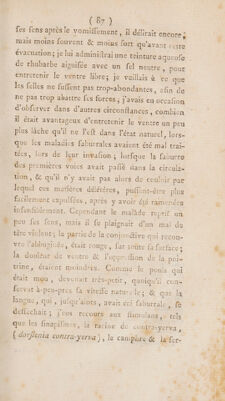 ( 87 )
ses sens après le vomissement, il délirait encore,
mais moins souvent & moins fort qu'avant cette
évacuation; je lui administrai une teinture aqueuse
de rhubarbe aiguisée avec un sel neutre, pour
entretenir le ventre libre; je veillais à ce que
les selles ne fussent pas trop-abondantes, afin de
ne pas trop abattre les forces; j'avais eu occasion
d'observer dans d'autres circonstances, combien
il était avantageux d'entretenir le ventre un peu
plus lâche qu'il ne l'est dans l'état naturel, lors-
que les maladies saburrales avaient été mal trai-
tées, lors de leur invasion; lorsque la saburre
des premières voies avait passé dans la circula-
tion, & qu'il n'y avait pas alors de couloir par
lequel ces matières délétères, pussent-être plus
facilement expulsées, après y avoir été ramenées
insensiblement. Cependant le malade reprit un
peu ses sens, mais il se plaignait d'un mal du
tête violent; la partie de la conjonctive qui recou-
vre l'albuginée, était rouge, sur toute sa surface;
la douleur de ventre & l'oppression de la poi-
trine, étaient moindres. Comme le pouls qui
était mou, devenait très-petit, quoiqu'il con-
servât à-peu-près sa vitesse naturelle; & que la
langue, qui, jusqu'alors, avait été saburrale, se
desséchait; j'eus recours aux stimulans, tels
que les sinapismes, la racine de contra-yerva,
( dorstenia contra-yerva ), le camphre & la ser-